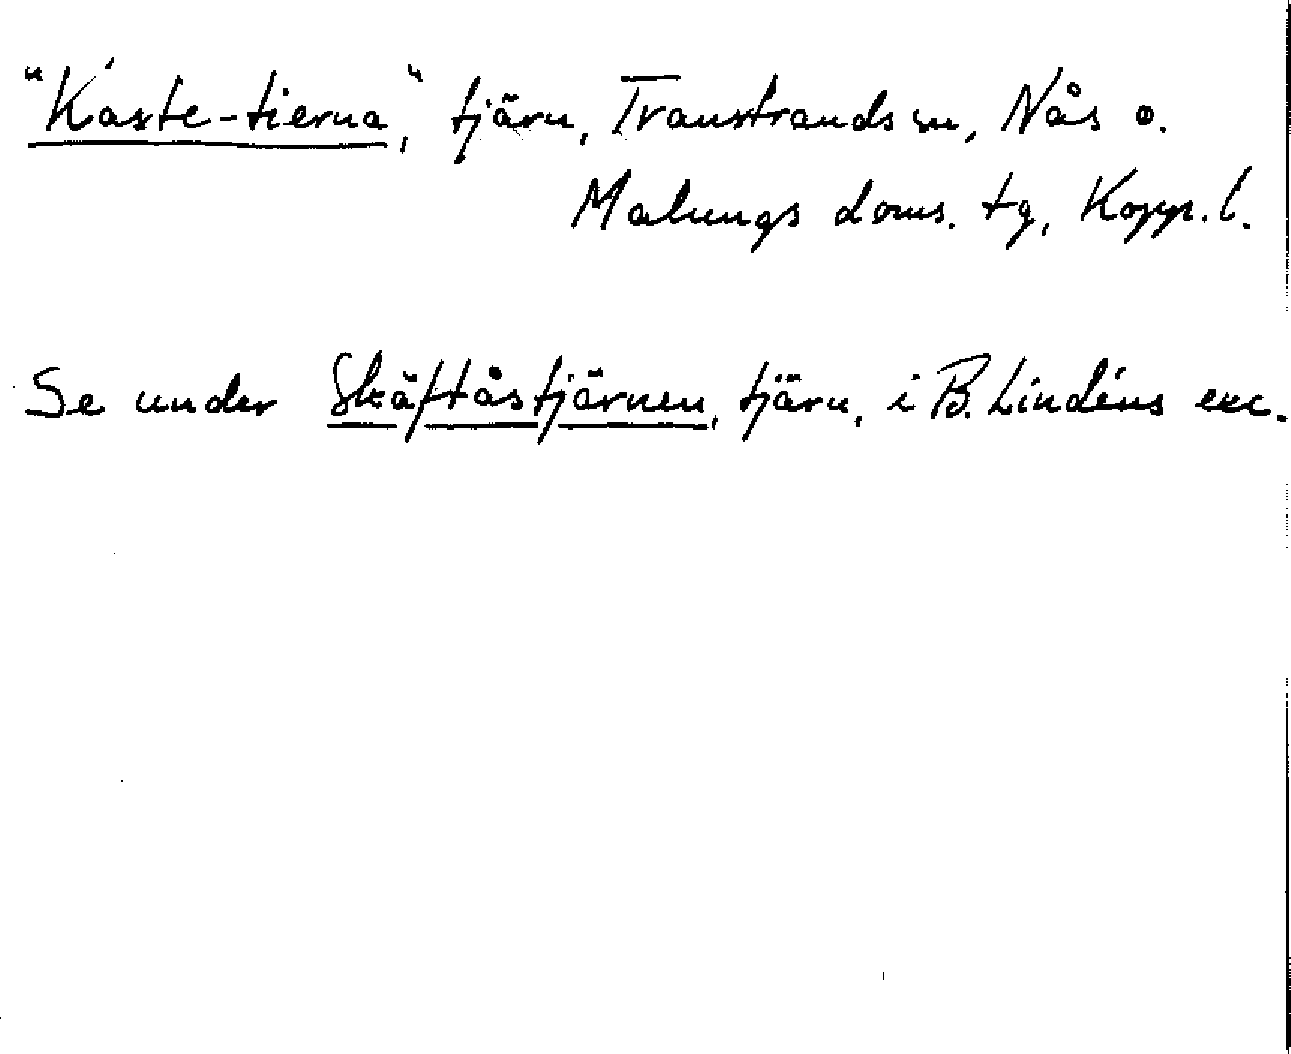 "Kaste-tierna", tjärn, Transtrands sn, Nås o.
Malungs doms. tg, Kopp. l.
Se under Skäftåstjärnen, tjärn, i B. Lindéns exc.